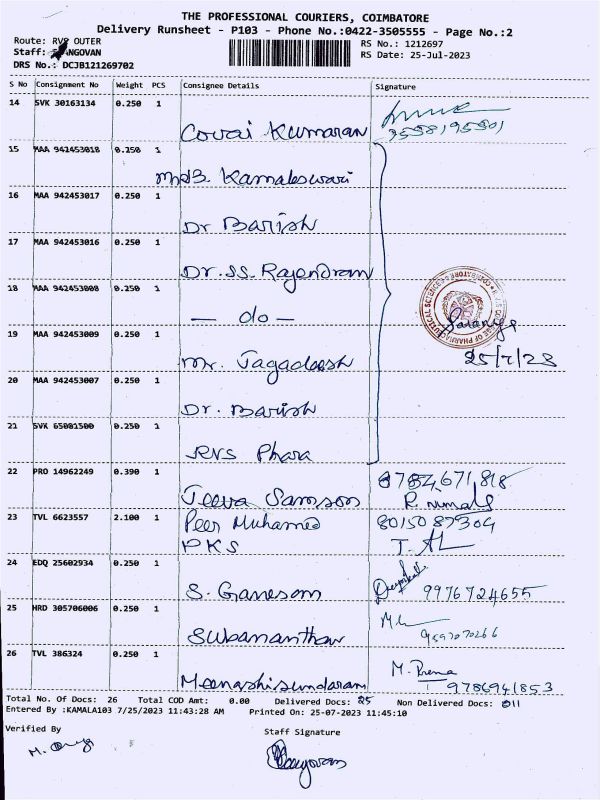 THE PROFESSIONAL COURIERS, COIMBATORE
Delivery Runsheet - P103 - Phone No.:0422-3505555 - Page No.:2
Route: RVS OUTER
RS No.: 1212697
Staff: ANGOVAN
RS Date: 25-Jul-2023
DRS No.: DCJB121269702
S No Consignment No Weight PCS Consignee Details Signature
14 SVK 30163134 0.250 1
Covai Kumaran
15 MAA 942453018 0.250 1
Mrs B. Kamaleswari
16 MAA 942453017 0.250 1
Dr Barish
17 MAA 942453016 0.250 1
Dr. SS. Rajendram
18 MAA 942453008 0.250 1
— do —
19 MAA 942453009 0.250 1
Mr. Jagadeesh
Saranya
25/7/23
20 MAA 942453007 0.250 1
Dr. Barish
21 SVK 65081500 0.250 1
RVS Phara
22 PRO 14962249 0.390 1
Jeeva Samson
23 TVL 6623557 2.100 1 Peer Muhamed 8015087304
PKS
24 EDQ 25602934 0.250 1
S. Ganesom 9976724655
25 HRD 305706006 0.250 1
Subananthan 9597070266
26 TVL 386324 0.250 1 M. Prema
Meenashisundaram 9786941853
Total No. Of Docs: 26 Total COD Amt: 0.00 Delivered Docs: 25 Non Delivered Docs: 011
Entered By :KAMALA103 7/25/2023 11:43:28 AM Printed On: 25-07-2023 11:45:10
Verified By Staff Signature